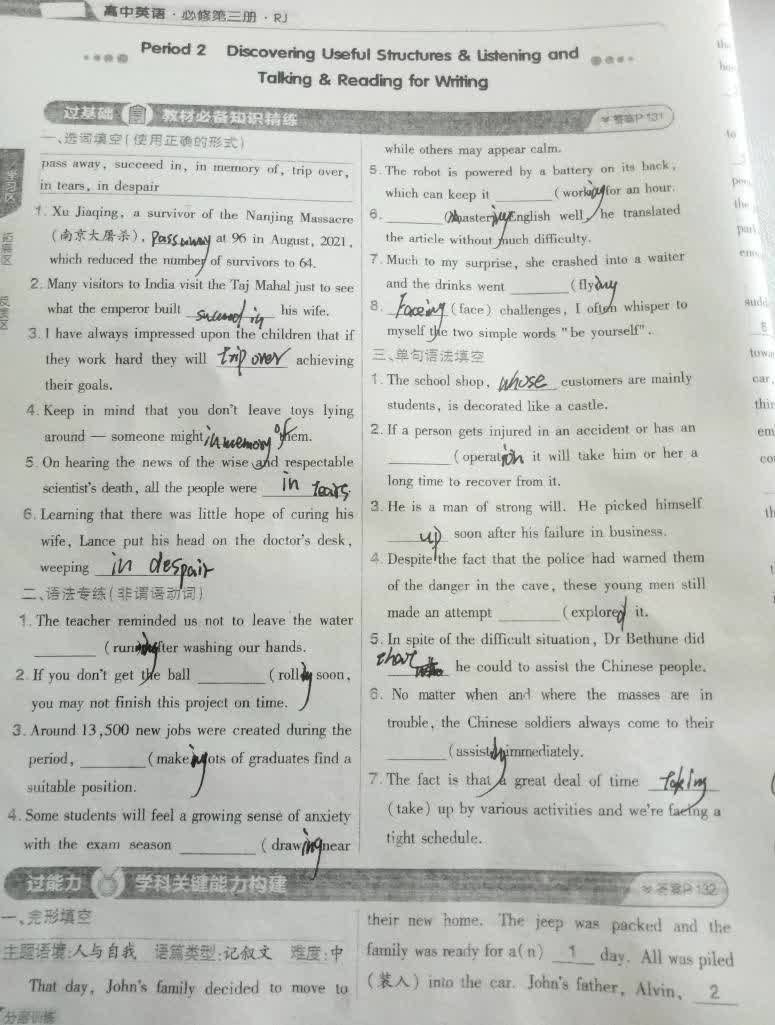 高中英语·必修第三册·RJ
Period 2 Discovering Useful Structures & Listening and
Talking & Reading for Writing
过基础 教材必备知识精练
答案P131
学习区
一、选词填空(使用正确的形式)
pass away, succeed in, in memory of, trip over,
in tears, in despair
1. Xu Jiaqing, a survivor of the Nanjing Massacre
(南京大屠杀), pass away at 96 in August, 2021,
which reduced the number of survivors to 64.
2. Many visitors to India visit the Taj Mahal just to see
what the emperor built succeed in his wife.
3. I have always impressed upon the children that if
they work hard they will trip over achieving
their goals.
4. Keep in mind that you don't leave toys lying
around — someone might in memory of them.
5. On hearing the news of the wise and respectable
scientist's death, all the people were in tears.
6. Learning that there was little hope of curing his
wife, Lance put his head on the doctor's desk,
weeping in despair
二、语法专练(非谓语动词)
1. The teacher reminded us not to leave the water
______ (running after washing our hands.
2. If you don't get the ball ______ (rolling soon,
you may not finish this project on time.
3. Around 13,500 new jobs were created during the
period, ______ (making lots of graduates find a
suitable position.
4. Some students will feel a growing sense of anxiety
with the exam season ______ (drawing near
while others may appear calm.
5. The robot is powered by a battery on its back,
which can keep it ______ (working for an hour.
6. ______ (Mastering English well, he translated
the article without much difficulty.
7. Much to my surprise, she crashed into a waiter
and the drinks went ______ (flying
8. Faceing (face) challenges, I often whisper to
myself the two simple words "be yourself".
三、单句语法填空
1. The school shop, whose customers are mainly
students, is decorated like a castle.
2. If a person gets injured in an accident or has an
______ (operation it will take him or her a
long time to recover from it.
3. He is a man of strong will. He picked himself
up soon after his failure in business.
4. Despite the fact that the police had warned them
of the danger in the cave, these young men still
made an attempt ______ (explored it.
5. In spite of the difficult situation, Dr Bethune did
he could to assist the Chinese people.
6. No matter when and where the masses are in
trouble, the Chinese soldiers always come to their
______ (assist immediately.
7. The fact is that a great deal of time taking
(take) up by various activities and we're facing a
tight schedule.
过能力 学科关键能力构建
答案P132
一、完形填空
主题语境:人与自我 语篇类型:记叙文 难度:中
That day, John's family decided to move to
their new home. The jeep was packed and the
family was ready for a(n) 1 day. All was piled
(装入) into the car. John's father, Alvin, 2
分层训练